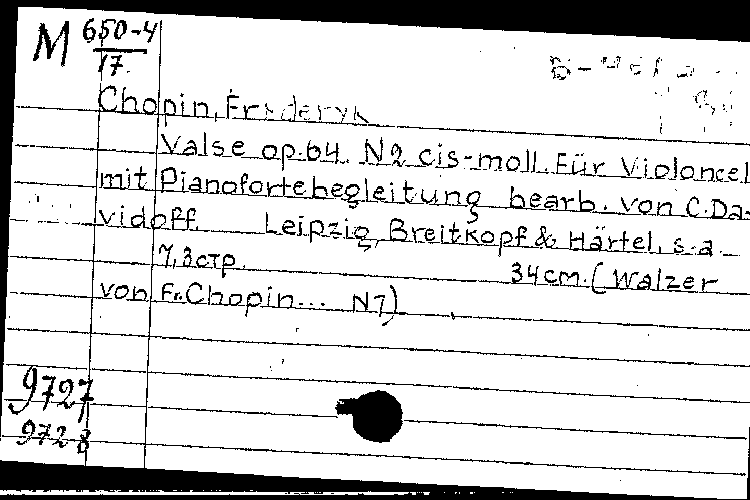 M 650-4
17.
Chopin, Frederyk
Valse op.64. N2 cis-moll. Für Violoncel
mit Pianofortebegleitung bearb. von C.Da-
vidoff. Leipzig, Breitkopf & Härtel, s.a.
7,3стр. 34cm. (Walzer
von Fr. Chopin... N7)
9727
9728